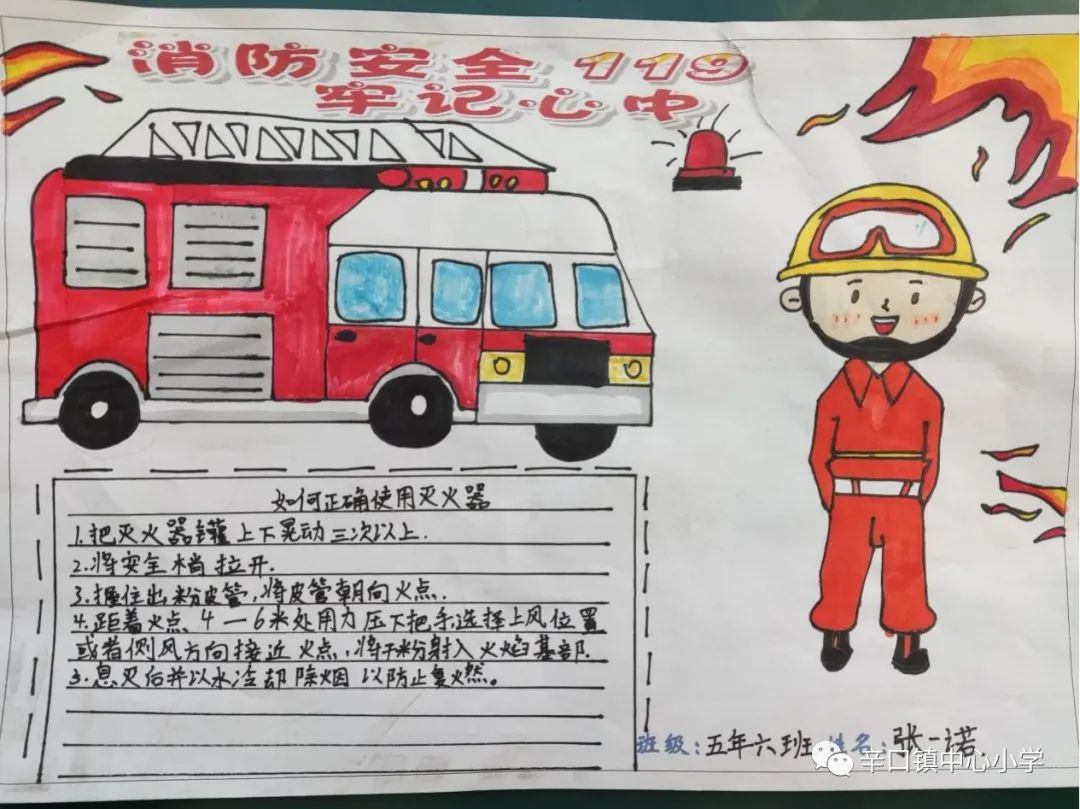 消防安全119
牢记心中
如何正确使用灭火器
1.把灭火器罐上下晃动三次以上.
2.将安全梢拉开.
3.握住出粉皮管,将皮管朝向火点.
4.距着火点4—6米处用力压下把手,选择上风位置
或者侧风方向接近火点,将干粉射入火焰基部.
5.息灭后并以水冷却除烟以防止复燃。
班级:五年六班 姓名:张一诺
辛口镇中心小学